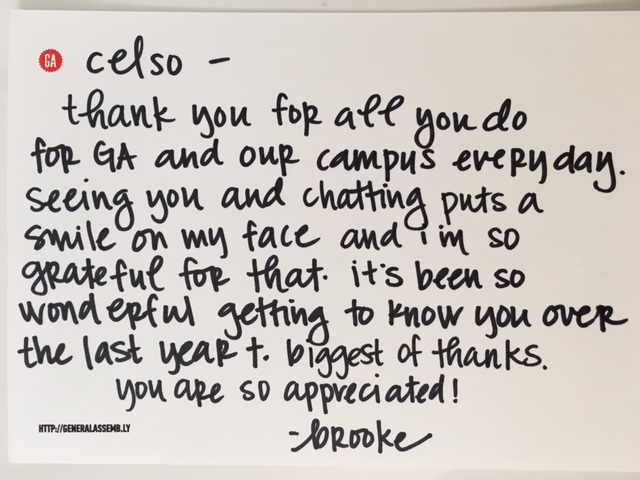 GA
celso –
thank you for all you do
for GA and our campus everyday.
seeing you and chatting puts a
smile on my face and i'm so
grateful for that. it's been so
wonderful getting to know you over
the last year+. biggest of thanks.
you are so appreciated!
-brooke
HTTP://GENERALASSEMB.LY